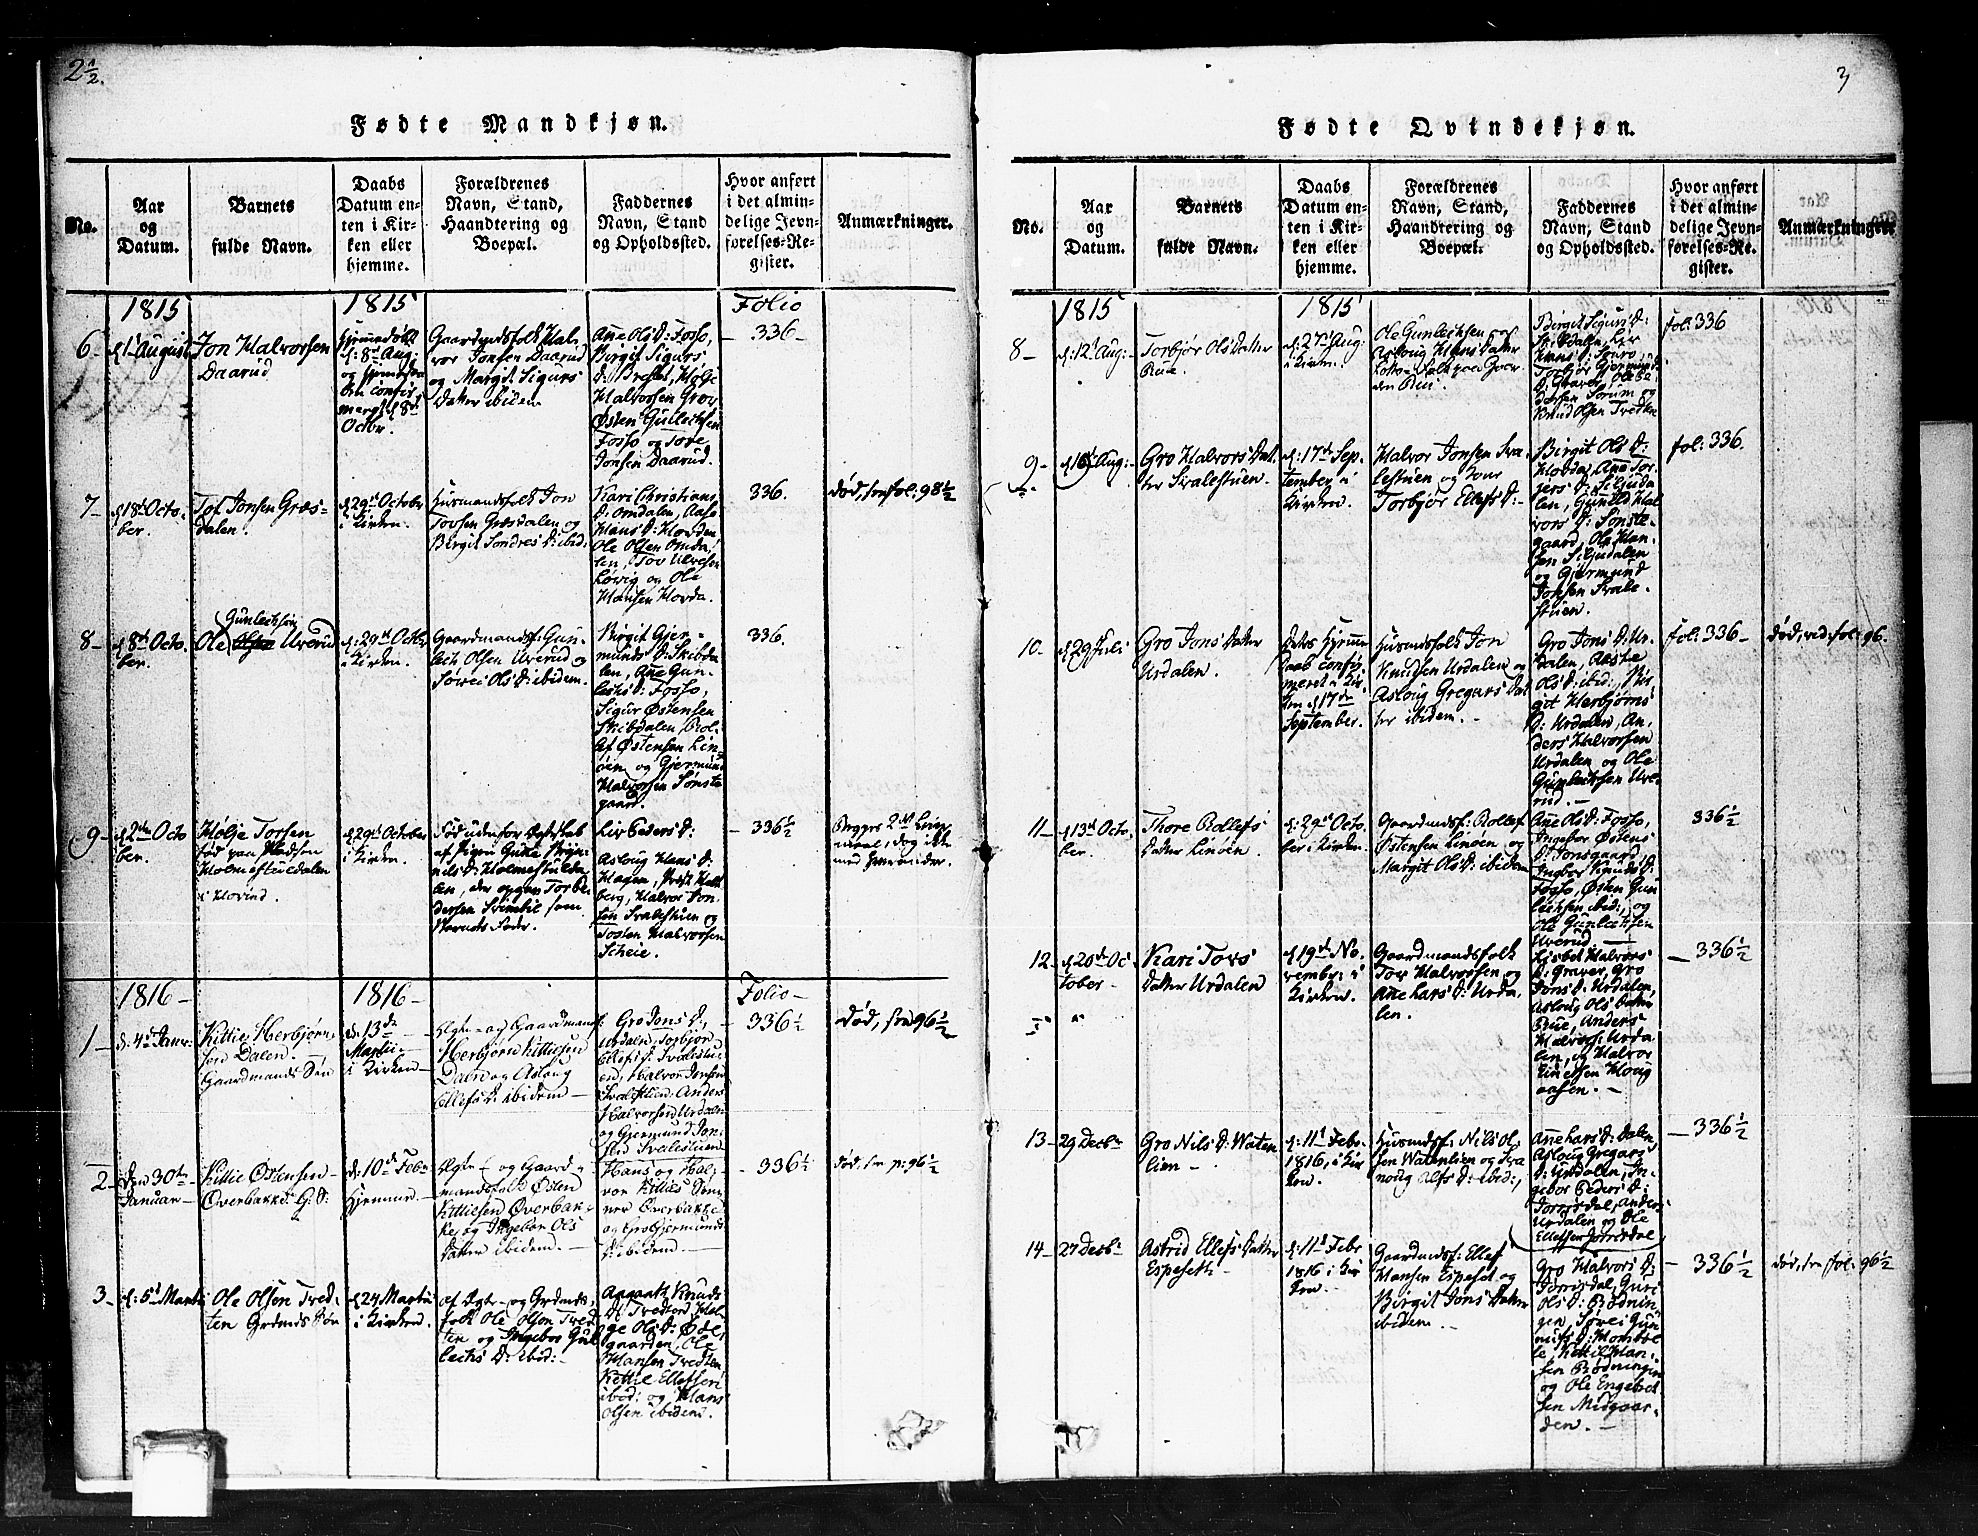 2 1/2.
Fødte Mandkjøn.
No.
Aar
og
Datum.
Barnets
fulde Navn.
Daabs
Datum en-
ten i Kir-
ken eller
hjemme.
Forældrenes
Navn, Stand,
Haandtering og
Boepæl.
Faddernes
Navn, Stand
og Opholdssted.
Hvor anført
i det almin-
delige Jevn-
førelses-Re-
gister.
Anmærkninger.
1815
1815
Folio
6-
d. 1t August
Jon Halvorsen
Daarud
Hjemmedøbt
d: 8de Aug:
d 8de
Octbr.
Gaardmdsfolk Hal-
vor Jonsen Daarud
og Margit Sigurs
Datter ibidem
Ane Ols D: Fosso,
Birgit Sigurs
Halvorsen Grov
Østen Gullechsen
Fosso og Tore
Jonsen Daarud.
336-
7-
d 18de Octo-
ber.
Tov Jonsen Græs-
dalen.
d 29de October
i Kirken.
Huusmandsfolk Jon
Tovsen Græsdalen og
Birgit Sondres D: ibid:
Kari Christians
D: Omdalen, Aase
Hans D: Hovden
Ole Olsen Omda-
len, Tov Ulvesen
Løvig og Ole
Hansen Hovda.
336.
død, see fol: 98 1/2
8-
d 8de Octo-
ber.
Gunlechsøn
Ole Olsen Uverud
d. 29de Octbr
i Kirken.
Gaardmandsf: Gun-
lech Olsen Uverud og
Sørvei Ols D: ibidem.
Birgit Gjer-
munds D: Skibda-
len, Ane Gun-
lechs D: Fosso,
Sigur Østensen
Skibdalen Rol-
lef Østensen Lin-
øen og Gjermund
Halvorsen Sønste-
gaard.
336.
9-
d 2den Octo
ber.
Hølje Torsen
fød paa Pladsen
Holmestuldalen
i Hovind.
d 29de October
i Kirken.
Fød udenfor Ægteskab
af Pigen Guttu Bryn-
nils D: Holmestulda-
len, der opgav Tor
Svimbil som
Barnets Fader.
Liv Peders D:
Aslaug Hans D:
Hagen,
berg, Halvor Jon-
sen Svalestuen og
Tosten Halvorsen
Scheie.
336 1/2
Begges 2det Leier-
maal, dog ikke
med hverandre.
1816-
1816-
Folio-
1-
d: 4de Janv:
Kittil Herbjørn-
sen Dalen.
Gaardmands Søn
d: 13de
Martii-
i Kirken-
Ægte- og Gaardmandsf:
Herbjørn Kittilsen
Dalen og Aslaug
Ellefs D: ibidem-
Gro Jons D:,
Urdalen, Torbjør
Ellefs D: Svalestu-
en, Halvor Jonsen
Svalestuen, Anders
Halvorsen Urdalen
og Gjermund Jon-
sen Svalestuen
336 1/2
død, see 96 1/2
2-
Den 30te
Januar-
Kittil Østensen-
Overbakke G: S:
d: 10de Febr
hjemme-
Ægte- og Gaard-
mandsfolk Østen
Kittilsen Overbak-
ke, og Ingebør Ols
Datter ibidem.-
Hans og Hal-
vor Kittils Søn-
ner Overbakke
og Gro Gjermunds
D: ibidem.-
336 1/2
død, see p: 96 1/2
3-
d: 5t Marti
Ole Olsen Tved-
ten Grdmds Søn
d 24 Martii
i Kirken.
af Ægte- og Grdmds-
folk Ole Olsen Tved-
ten og Ingebor Gul-
lechs D: ibid:-
Aagaath Knuds
D: Tvedten, Høl-
ge Ols D: Øde-
gaarden, Ole
Hansen Tvedten
Kittil Ellefsen
ibid: og Hans
Olsen ibidem.
3
Fødte Qvindekjøn.
No.
Aar
og
Datum.
Barnets
fulde Navn.
Daabs
Datum en-
ten i Kir-
ken eller
hjemme.
Forældrenes
Navn, Stand,
Haandtering og
Boepæl.
Faddernes
Navn, Stand
og Opholdssted.
Hvor anført
i det almin-
delige Jevn-
førelses-Re-
gister.
Anmærkninger
1815
1815
8-
d. 12t Aug:
Torbjør Ols Datter
Rue.
d: 27de Aug:
i Kirken.
Ole Gunlechsen og
Aslaug Hans Datter
Birgit Sigurs D:
Torbjør Gjermunds
D: Graver,
Sorum og
Knud Olsen Tvedten
fol: 336
9-
d 16t Aug:
Gro Halvors Dat-
ter Svalestuen.
d: 17de Sep-
tember i
Kirken.
Halvor Jonsen Sva-
lestuen og Kone
Torbjør Ellefs D:-
Birgit Ols D:
Hovda, Ane Tor-
gers D: Siljuda-
len, Gunild Hal-
vors D: Sønste-
gaard, Ole Han-
sen Siljudalen
og Gjermund
Jonsen Svale-
stuen.
fol: 336.
10-
d 29 Juli
Gro Jons Datter
Urdalen.
Dets Hjemme
daab confir-
meret i Kir-
ken d 17de
September.
Huusmdsfolk Jon
Knudsen Urdalen og
Aslaug Gregars Dat-
ter ibidem.-
Gro Jons D: Ur-
dalen, Aastie
Ols D: ibid:, Bir-
git Herbjørns
D: Urdalen, An-
ders Halvorsen
Urdalen og Ole
Gunlechsen Uve-
rud.-
fol: 336-
død, vid: fol: 96.
11-
d 13de Octo-
ber.
Thore Rollefs
Datter Linøen.
d: 29de Octo-
ber i Kirken.
Gaardmdsf: Rollef
Østensen Linøen og
Margit Ols D: ibidem
Ane Ols D: Fosso,
Ingebor Østens
D: Jonsgaard
Ingebor Knuds D:
Fosso, Østen Gun-
lechsen ibid:, og
Ole Gunlechsen
Uverud.-
336 1/2
12-
d 20de Oc-
tober-
Kari Tovs
Datter Urdalen
d 19de No-
vember i
Kirken.
Gaardmandsfolk
Tov Halvorsen og
Ane Lars D: Urda-
len.
Lisbet Halvors
D: Graver, Gro
Jons D: Urdalen,
Aslaug Ols Datter
Rue, Anders
Halvors: Urda-
len, og Halvor
Knudsen Houg-
aasen.-
336 1/2
13-
29 Decbr
Gro Nils D: Waten-
lien-
d: 11t Febr.
1816, i Kir-
ken.
Huusmdsf: Nils Ol-
sen Watenlien og
Alfs D: ibid:,
Ane Lars D: Dalen,
Aslaug Gregars
D: Urdalen, In-
gebor Peders D:
Torrisdal, Anders
Urdalen og Ole
Ellefsen Torrisdal
336 1/2
14-
27 Decbr
Astrid Ellefs Datter
Espeseth-
d: 11t Febr
1816 i Kir-
ken.
Gaardmdsf: Ellef
Hansen Espeset og
Birgit Jons Datter
ibidem.-
Gro Halvors D:
Torrisdal, Guri
Ols D: Bødnin-
gen, Sørvei Gun-
nufs D: Homtve-
le, Kittil Han-
sen Bødningen
og Ole Engebret-
sen Midgaar-
den.-
336 1/2
død, see fol: 96 1/2